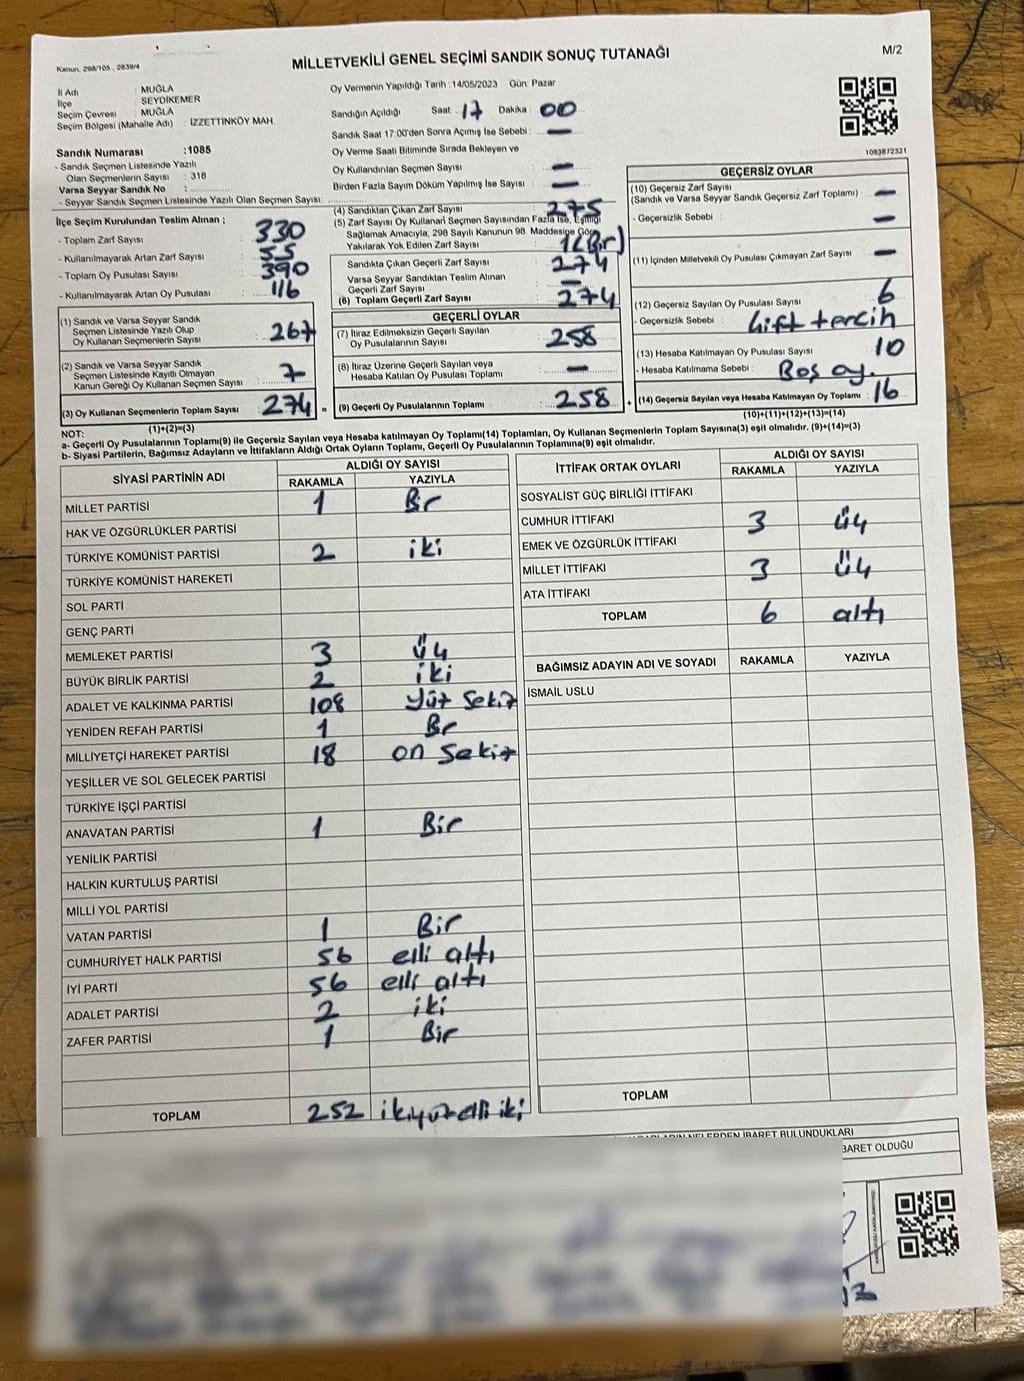 Kanun, 298/105 , 2839/4
MİLLETVEKİLİ GENEL SEÇİMİ SANDIK SONUÇ TUTANAĞI
M/2
İl Adı : MUĞLA
İlçe : SEYDİKEMER
Seçim Çevresi : MUĞLA
Seçim Bölgesi (Mahalle Adı) : İZZETTİNKÖY MAH.
Sandık Numarası :1085
- Sandık Seçmen Listesinde Yazılı
Olan Seçmenlerin Sayısı : 318
Varsa Seyyar Sandık No :
- Seyyar Sandık Seçmen Listesinde Yazılı Olan Seçmen Sayısı:
Oy Vermenin Yapıldığı Tarih : 14/05/2023 Gün: Pazar
Sandığın Açıldığı Saat: 17 Dakika : 00
Sandık Saat 17:00'den Sonra Açımış İse Sebebi : —
Oy Verme Saati Bitiminde Sırada Bekleyen ve
Oy Kullandırılan Seçmen Sayısı : —
Birden Fazla Sayım Döküm Yapılmış İse Sayısı : —
1083872321
İlçe Seçim Kurulundan Teslim Alınan ;
- Toplam Zarf Sayısı : 330
- Kullanılmayarak Artan Zarf Sayısı : 55
- Toplam Oy Pusulası Sayısı : 390
- Kullanılmayarak Artan Oy Pusulası : 116
(1) Sandık ve Varsa Seyyar Sandık
Seçmen Listesinde Yazılı Olup
Oy Kullanan Seçmenlerin Sayısı : 267
(2) Sandık ve Varsa Seyyar Sandık
Seçmen Listesinde Kayıtlı Olmayan
Kanun Gereği Oy Kullanan Seçmen Sayısı : 7
(3) Oy Kullanan Seçmenlerin Toplam Sayısı : 274 =
(1)+(2)=(3)
(4) Sandıktan Çıkan Zarf Sayısı : 275
(5) Zarf Sayısı Oy Kullanan Seçmen Sayısından Fazla İse, Eşitliği
Sağlamak Amacıyla, 298 Sayılı Kanunun 98. Maddesine Göre
Yakılarak Yok Edilen Zarf Sayısı : 1 (Bir)
Sandıkta Çıkan Geçerli Zarf Sayısı : 274
Varsa Seyyar Sandıktan Teslim Alınan
Geçerli Zarf Sayısı : —
(6) Toplam Geçerli Zarf Sayısı : 274
GEÇERLİ OYLAR
(7) İtiraz Edilmeksizin Geçerli Sayılan
Oy Pusulalarının Sayısı : 258
(8) İtiraz Üzerine Geçerli Sayılan veya
Hesaba Katılan Oy Pusulası Toplamı : —
(9) Geçerli Oy Pusulalarının Toplamı : 258 +
GEÇERSİZ OYLAR
(10) Geçersiz Zarf Sayısı
(Sandık ve Varsa Seyyar Sandık Geçersiz Zarf Toplamı) : —
- Geçersizlik Sebebi : —
(11) İçinden Milletvekili Oy Pusulası Çıkmayan Zarf Sayısı : —
(12) Geçersiz Sayılan Oy Pusulası Sayısı : 6
- Geçersizlik Sebebi : Çift tercih
(13) Hesaba Katılmayan Oy Pusulası Sayısı : 10
- Hesaba Katılmama Sebebi : Boş oy.
(14) Geçersiz Sayılan veya Hesaba Katılmayan Oy Toplamı : 16
(10)+(11)+(12)+(13)=(14)
NOT:
a- Geçerli Oy Pusulalarının Toplamı(9) ile Geçersiz Sayılan veya Hesaba katılmayan Oy Toplamı(14) Toplamları, Oy Kullanan Seçmenlerin Toplam Sayısına(3) eşit olmalıdır. (9)+(14)=(3)
b- Siyasi Partilerin, Bağımsız Adayların ve İttifakların Aldığı Ortak Oyların Toplamı, Geçerli Oy Pusulalarının Toplamına(9) eşit olmalıdır.
SİYASİ PARTİNİN ADI ALDIĞI OY SAYISI
RAKAMLA YAZIYLA
MİLLET PARTİSİ 1 Bir
HAK VE ÖZGÜRLÜKLER PARTİSİ
TÜRKİYE KOMÜNİST PARTİSİ 2 iki
TÜRKİYE KOMÜNİST HAREKETİ
SOL PARTİ
GENÇ PARTİ
MEMLEKET PARTİSİ 3 üç
BÜYÜK BİRLİK PARTİSİ 2 iki
ADALET VE KALKINMA PARTİSİ 108 Yüz Sekiz
YENİDEN REFAH PARTİSİ 1 Br
MİLLİYETÇİ HAREKET PARTİSİ 18 on Sekiz
YEŞİLLER VE SOL GELECEK PARTİSİ
TÜRKİYE İŞÇİ PARTİSİ
ANAVATAN PARTİSİ 1 Bir
YENİLİK PARTİSİ
HALKIN KURTULUŞ PARTİSİ
MİLLİ YOL PARTİSİ
VATAN PARTİSİ 1 Bir
CUMHURİYET HALK PARTİSİ 56 elli altı
İYİ PARTİ 56 elli altı
ADALET PARTİSİ 2 iki
ZAFER PARTİSİ 1 Bir
TOPLAM 252 ikiyüzelli iki
İTTİFAK ORTAK OYLARI ALDIĞI OY SAYISI
RAKAMLA YAZIYLA
SOSYALİST GÜÇ BİRLİĞİ İTTİFAKI
CUMHUR İTTİFAKI 3 üç
EMEK VE ÖZGÜRLÜK İTTİFAKI
MİLLET İTTİFAKI 3 üç
ATA İTTİFAKI
TOPLAM 6 altı
BAĞIMSIZ ADAYIN ADI VE SOYADI RAKAMLA YAZIYLA
İSMAİL USLU
TOPLAM
NELERDEN İBARET BULUNDUKLARI
BARET OLDUĞU